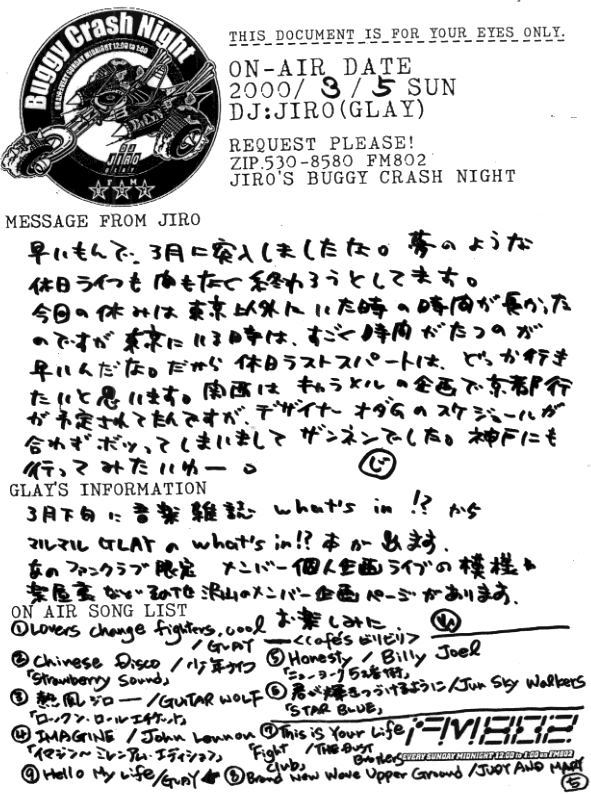 Buggy Crash Night
ON AIR EVERY SUNDAY MIDNIGHT 12:00 to 1:00
DJ
JIRO
GLAY
THIS DOCUMENT IS FOR YOUR EYES ONLY.
ON-AIR DATE
2000/3/5 SUN
DJ:JIRO(GLAY)
REQUEST PLEASE!
ZIP.530-8580 FM802
JIRO'S BUGGY CRASH NIGHT
MESSAGE FROM JIRO
早いもんで、3月に突入しましたな。夢のような
休日ライフも間もなく終わろうとしてます。
今回の休みは東京以外にいた時の時間が長かった
のですが東京にいる時は、すごく時間がたつのが
早いんだな。だから休日ラストスパートは、どっか行き
たいと思います。関西はキャラメルの企画で京都行
が予定されてたんですが、デザイナーオダGのスケジュールが
合わずボツってしまいまして ザンネンでした。神戸にも
行ってみたいゆー。 じ
GLAY'S INFORMATION
3月下旬に音楽雑誌 what's in!? から
マルマルGLAYのwhat's in!?本が出ます。
あのファンクラブ限定 メンバー個人企画ライブの模様や
楽屋裏など 沢山のメンバー企画ページがあります。
お楽しみに。
ON AIR SONG LIST
①Lovers change fighters, cool / GLAY
—<Café's ビリビリ>
②Chinese Disco / 少年ナイフ
「Strawberry Sound」
③熱風ジロー / GUITAR WOLF
「ロックン・ロールエチケット」
④IMAGINE / John Lennon
「イマジン〜ミレニアム・エディション」
⑤Honesty / Billy Joel
「ニューヨーク52番街」
⑥君が輝きつづけるように / Jun Sky Walkers
「STAR BLUE」
⑦This is Your Life / THE DUST Brothers
「Fight Club」
FM802
EVERY SUNDAY MIDNIGHT 12:00 to 1:00 on FM802
⑨Hello My Life / GLAY
⑧Brand New Wave Upper Ground / JUDY AND MARY
5